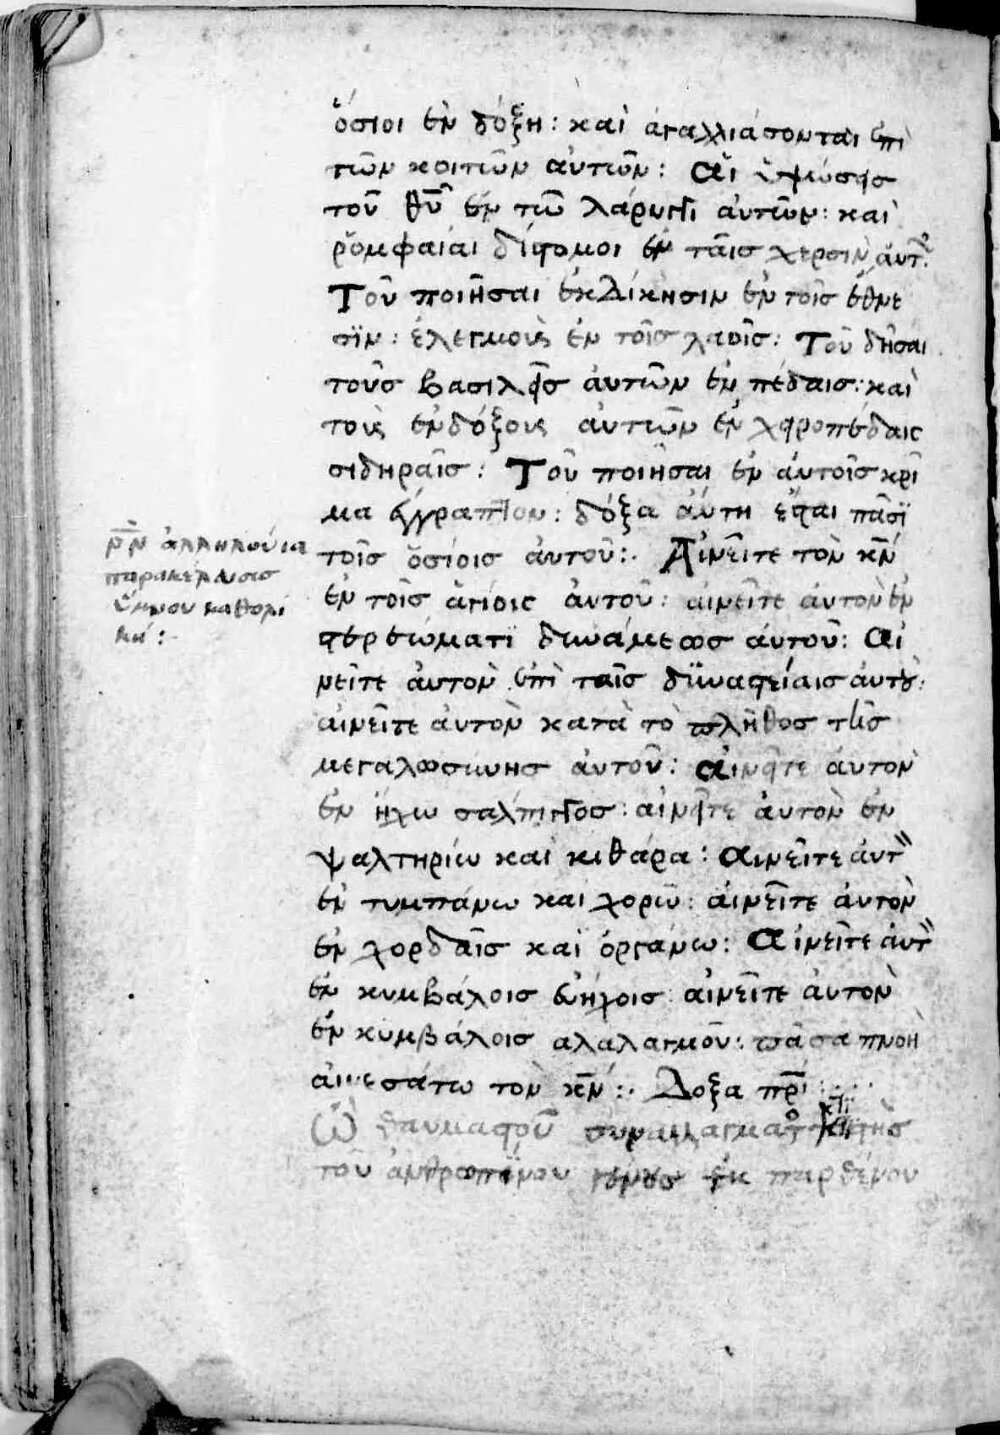 ὅσιοι ἐν δόξῃ: καὶ ἀγαλλιάσονται ἐπὶ
τῶν κοιτῶν αὐτῶν: Αἱ ὑψώσεις
τοῦ θῦ ἐν τῶ λάρυγγι αὐτῶν: καὶ
ῥομφαίαι δίστομοι ἐν ταῖς χερσὶν αὐτ̂:
Τοῦ ποιῆσαι ἐκδίκησιν ἐν τοῖς ἔθνε
σϊν: ἐλεγμοὺς ἐν τοῖς λαοῖς: Τοῦ δῆσαι
τοὺς βασιλεῖς αὐτῶν ἐν πέδαις: καὶ
τοὺς ἐνδόξους αὐτῶν ἐν χειροπέδαις
σιδηραῖς: Τοῦ ποιῆσαι ἐν αὐτοῖς κρῖ
μα ἔγγραπτον: δόξα αὕτη ἔσται πᾶσϊ
τοῖς ὁσίοις αὐτοῦ:. Αἰνεῖτε τὸν κν̅
ἐν τοῖς ἁγίοις αὐτοῦ: αἰνεῖτε αὐτὸν ἐν
στερεώματϊ δυνάμεως αὐτοῦ: Αἰ
νεῖτε αὐτὸν ἐπὶ ταῖς δϋναστείαις αὐτοῦ:
αἰνεῖτε αὐτὸν κατὰ τὸ πλῆθος τῆς
μεγαλωσύνης αὐτοῦ: Αἰνεῖτε αὐτὸν
ἐν ἤχω σαλπιγγος: αἰνεῖτε αὐτὸν ἐν
ψαλτηρίω καὶ κιθάρα: Αἰνεῖτε αὐτ̀
ἐν τυμπάνω καὶ χορῶ: αἰνεῖτε αὐτὸν
ἐν χορδαῖς καὶ ὀργάνω: Αἰνεῖτε αὐτ̀
ἐν κυμβάλοις εὐήχοις αἰνεῖτε αὐτὸν
ἐν κυμβάλοις αλαλαγμοῦ: πᾶσα πνοὴ
αἰνεσάτω τὸν κν̅:. Δοξα πρι̅
Ὢ θαυμαστοῦ
τοῦ ἀνθρωπΐνου γένους ἐκ παρθένου
ρν̅ ἀλληλούια
παρακέλευσις
ὕμνου καθολι
κή: